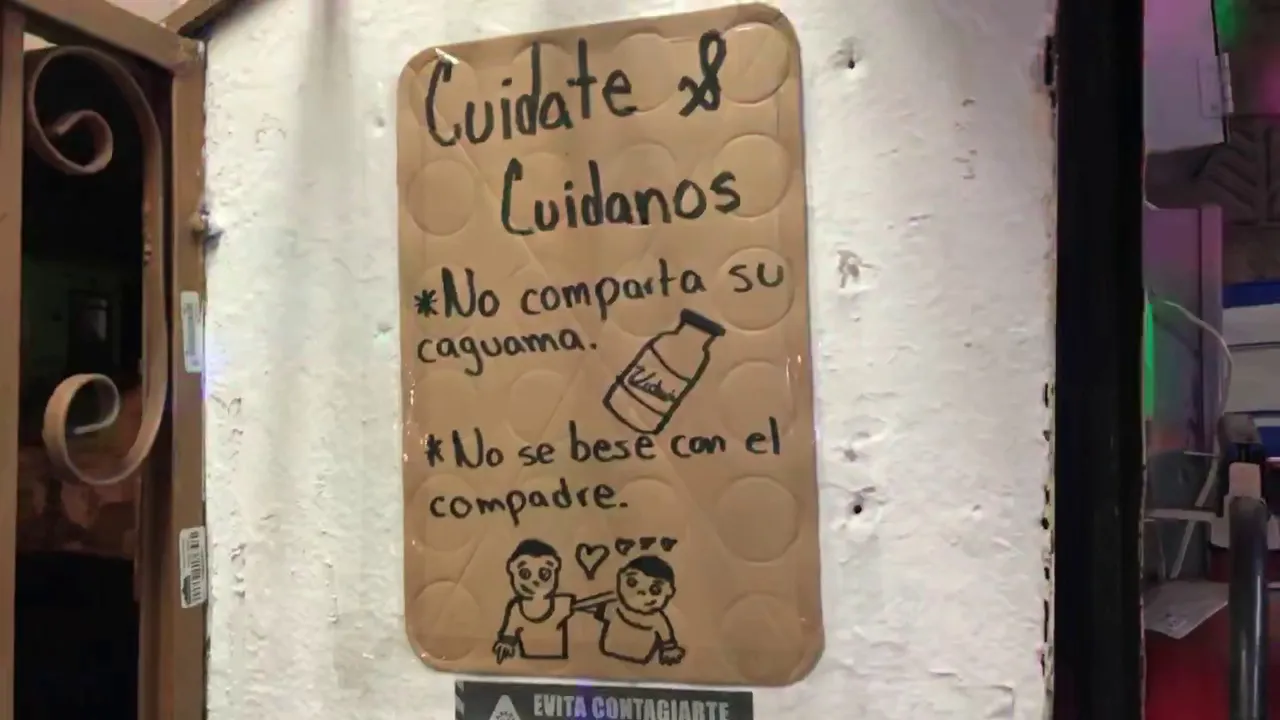 Cuidate &
Cuidanos
*No comparta su
caguama.
*No se bese con el
compadre.
EVITA CONTAGIARTE